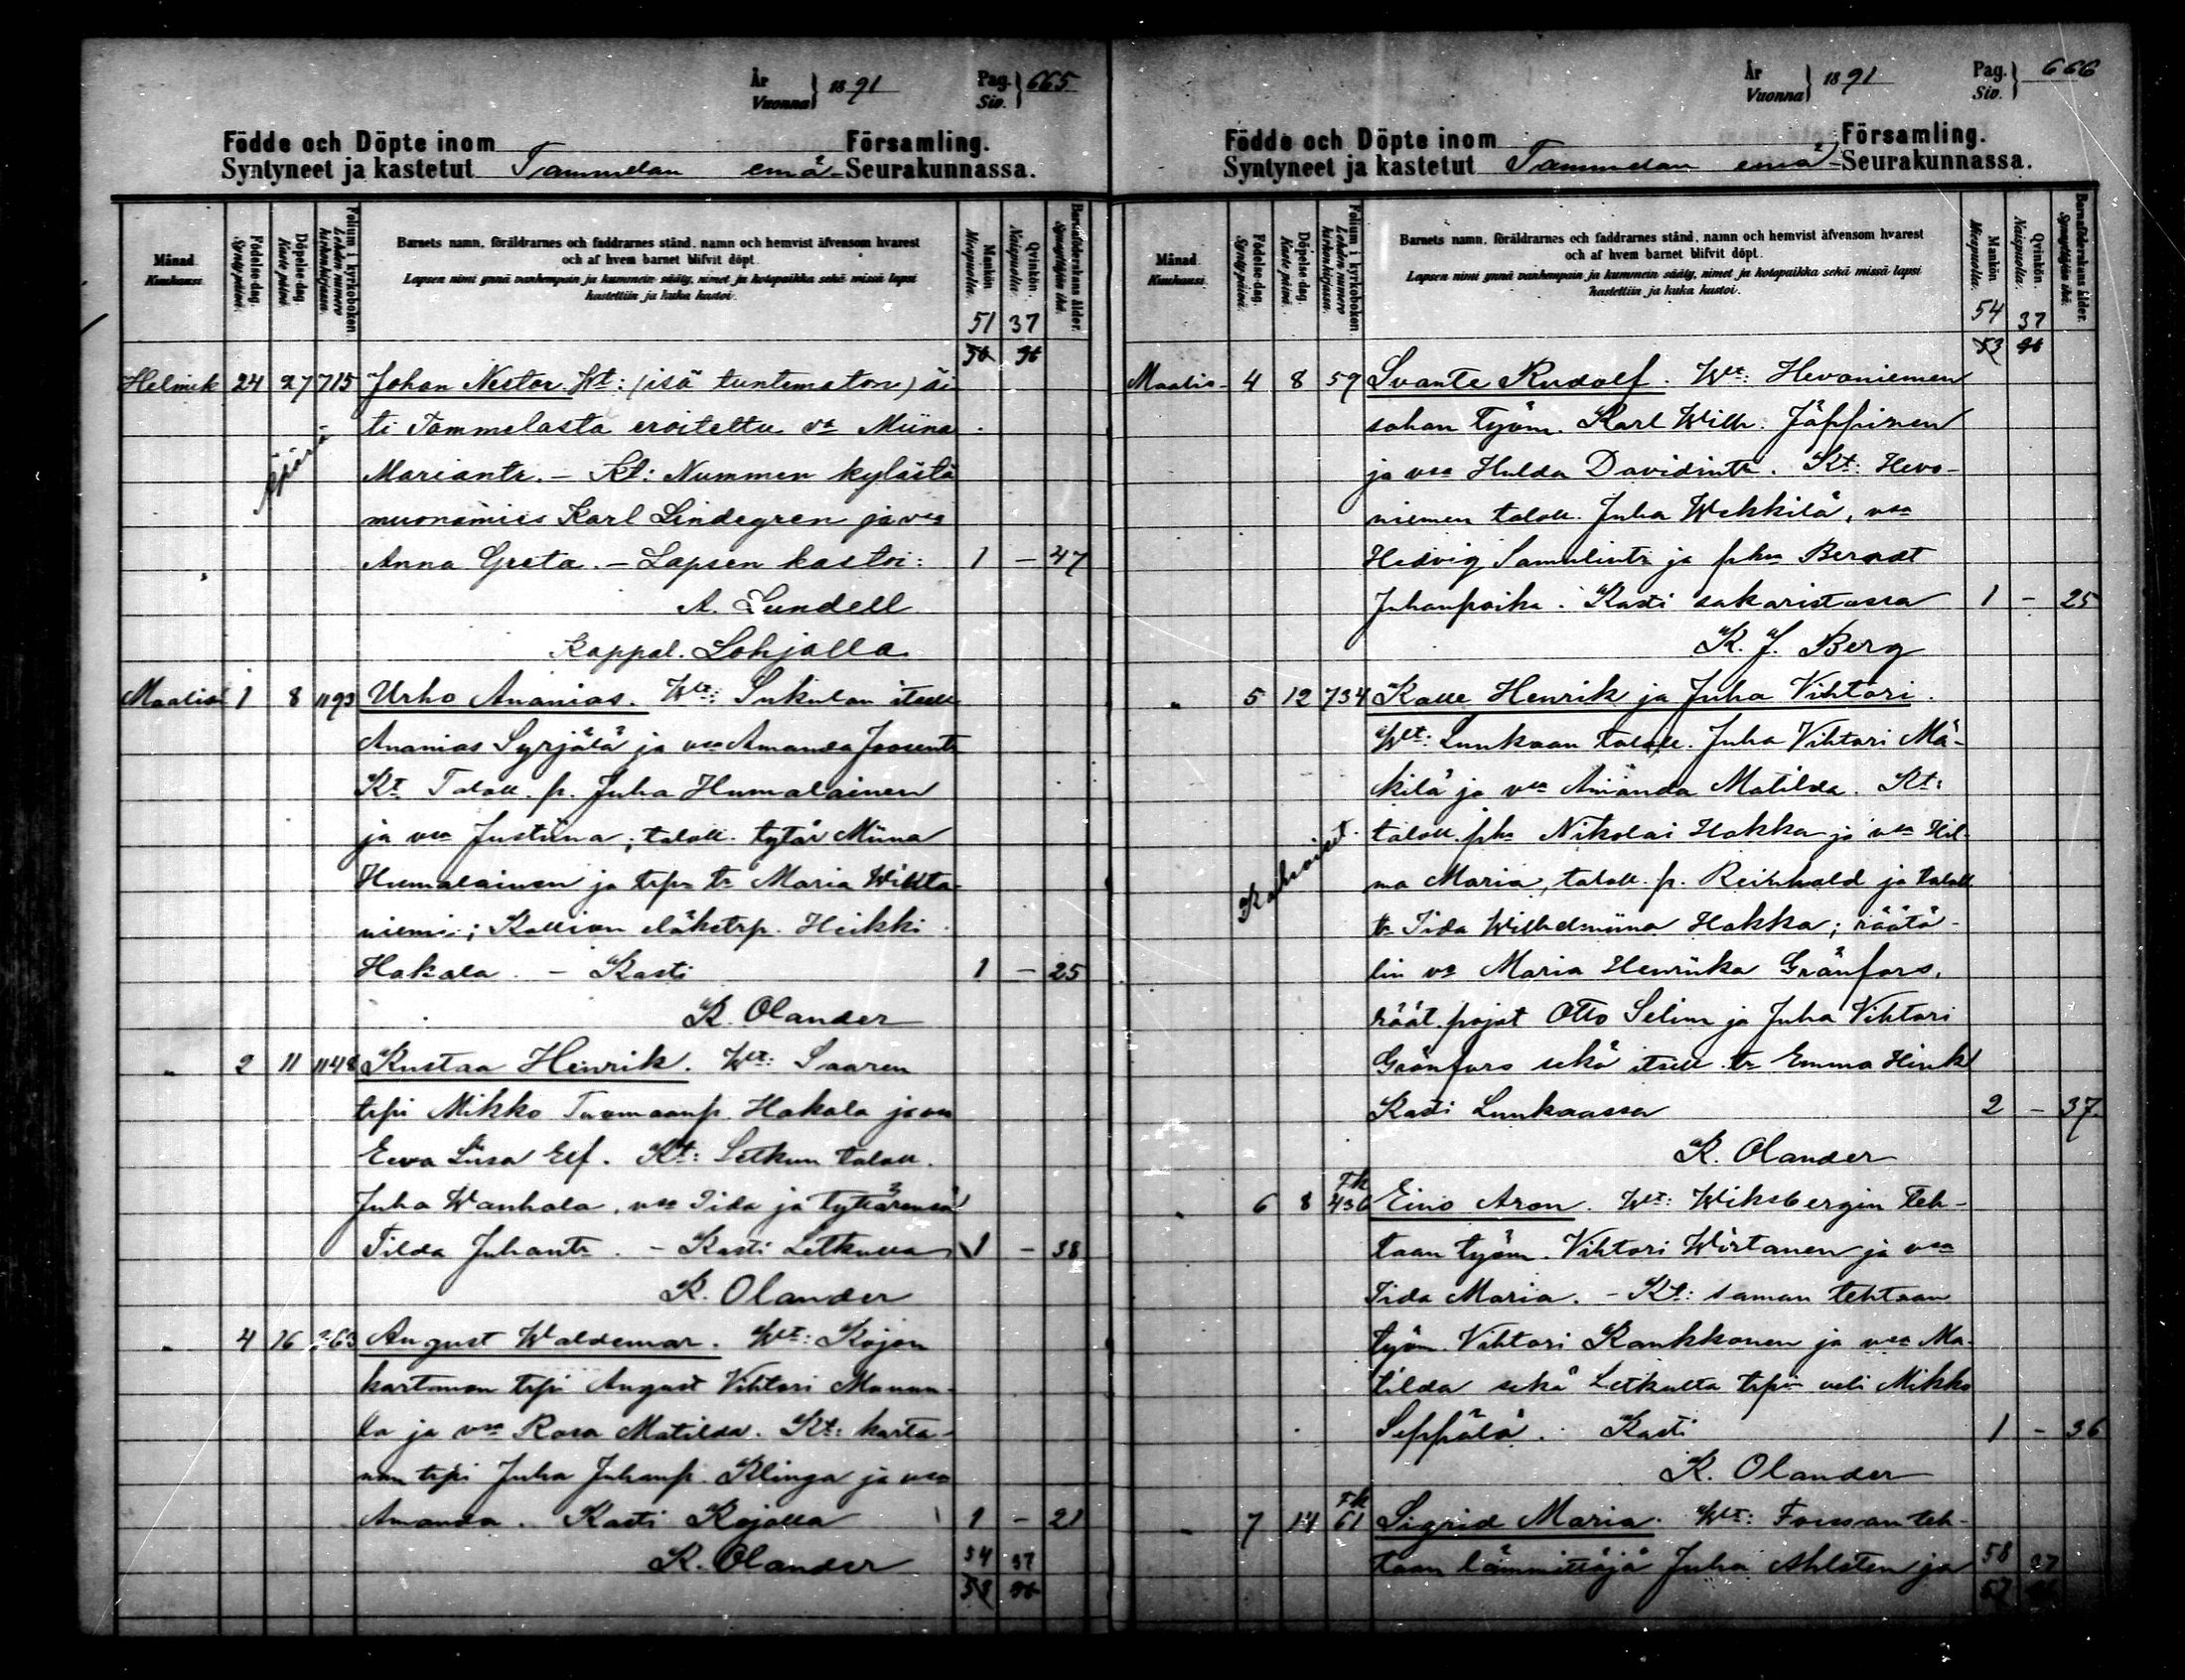 År
Vuonna } 1891
Pag.
Siv. } 665
Födde och Döpte inom Församling.
Syntyneet ja kastetut Tammelan emä- Seurakunnassa.
Månad. Kuukausi.
Födelse-dag. Syntypäivä.
Döpelse-dag. Kastepäivä.
Folium i kyrkoboken. Lehden numero kirkonkirjassa.
Barnets namn, föräldrarnes och faddrarnes stånd, namn och hemvist äfvensom hvarest
och af hvem barnet blifvit döpt.
Lapsen nimi ynnä vanhempain ja kummein sääty, nimet ja kotopaikka sekä missä lapsi
kastettiin ja kuka kastoi.
Mankön. Miespuolia.
Qvinkön. Naispuolia.
Barnaföderskans ålder. Synnyttäjän ikä.
51 37
50 36
Helmik 24 27 715 Johan Nestor. Wt: (isä tuntematon) äi-
ti Tammelasta eroitettu va Miina
Mariantr. – Kt: Nummen kylästä
muonamies Karl Lindegren ja vmo
Anna Greta. – Lapsen kastoi: 1 – 47
A. Lundell
Kappal. Lohjalla
Maalisk 1 8 1193 Urho Ananias. Wt: Sukulan itsell
Ananias Syrjälä ja vmo Amanda Joosentr
Kt. Talell. p. Juha Humalainen
ja vmo Justiina; talell. tytär Miina
Humalainen ja trpn tr Maria Wihta-
niemi; Kallion eläketrp. Heikki
Hakala. – Kasti 1 – 25
K. Olander
" 2 11 1148 Kustaa Henrik. Wt: Saaren
trpi Mikko Tuomaanp. Hakala ja vmo
Eeva Liisa Elf. Kt: Letkun talell.
Juha Wanhala, vmo Iida ja tyttärensä
Tilda Juhantr. – Kasti Letkulla 1 – 38
K. Olander
" 4 16 263 August Waldemar. Wt: Kojon
kartanon trpi August Vihtori Manun-
la ja vmo Rosa Matilda. Kt: karta-
non trpi Juha Juhanp. Klinga ja vmo
Amanda. Kasti Kojolla 1 – 21
K. Olander
54 37
53 36
År
Vuonna } 1891
Pag.
Siv. } 666
Födde och Döpte inom Församling.
Syntyneet ja kastetut Tammelan emä- Seurakunnassa.
Månad. Kuukausi.
Födelse-dag. Syntypäivä.
Döpelse-dag. Kastepäivä.
Folium i kyrkoboken. Lehden numero kirkonkirjassa.
Barnets namn, föräldrarnes och faddrarnes stånd, namn och hemvist äfvensom hvarest
och af hvem barnet blifvit döpt.
Lapsen nimi ynnä vanhempain ja kummein sääty, nimet ja kotopaikka sekä missä lapsi
kastettiin ja kuka kastoi.
Mankön. Miespuolia.
Qvinkön. Naispuolia.
Barnaföderskans ålder. Synnyttäjän ikä.
54 37
53 36
Maalis- 4 8 59 Svante Rudolf. Wt: Hevoniemen
sahan työm. Karl Wilh. Jäppinen
ja vmo Hulda Davidintr. Kt: Hevo-
niemen talell. Juha Wekkilä, vmo
Hedvig Samulintr ja pka Berndt
Juhanpoika. Kasti sakaristossa 1 – 25
K. J. Berg
" 5 12 734 Kalle Henrik ja Juha Vihtori.
Wt: Lunkaan talell. Juha Vihtori Mä-
kilä ja vmo Amanda Matilda. Kt:
Kaksoiset.
talell. pka Nikolai Hakka ja vmo Hil-
ma Maria, talell. p. Reinhold ja talell
tr Iida Wilhelmiina Hakka; räätä-
lin va Maria Henriika Grönfors,
räät. pojat Otto Selim ja Juha Vihtori
Grönfors sekä itsell. tr Emma Hinkl
Kasti Lunkaassa 2 – 37
K. Olander
" 6 8 Fk 436 Eino Aron. Wt: Wiksbergin teh-
taan työm. Vihtori Wirtanen ja vmo
Iida Maria. – Kt: saman tehtaan
työm. Vihtori Kankkonen ja vmo Ma-
tilda sekä Letkulta trpn veli Mikko
Seppälä. Kasti 1 – 36
K. Olander
" 7 14 Fk 61 Sigrid Maria. Wt: Forssan teh-
taan lämmittäjä Juha Ahlsten ja
58 37
57 36